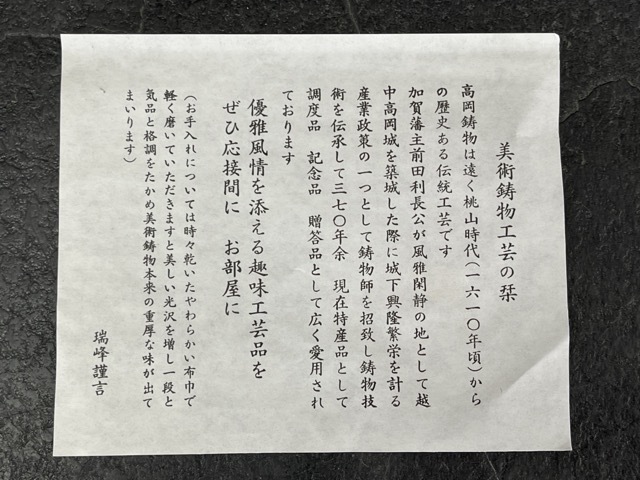 美術鋳物工芸の栞
高岡鋳物は遠く桃山時代(一六一〇年頃)から
の歴史ある伝統工芸です
加賀藩主前田利長公が風雅閑静の地として越
中高岡城を築城した際に城下興隆繁栄を計る
産業政策の一つとして鋳物師を招致し鋳物技
術を伝承して三七〇年余 現在特産品として
調度品 記念品 贈答品として広く愛用され
ております
優雅風情を添える趣味工芸品を
ぜひ応接間に お部屋に
(お手入れについては時々乾いたやわらかい布巾で
軽く磨いていただきますと美しい光沢を増し一段と
気品と格調をたかめ美術鋳物本来の重厚な味が出て
まいります)
瑞峰謹言